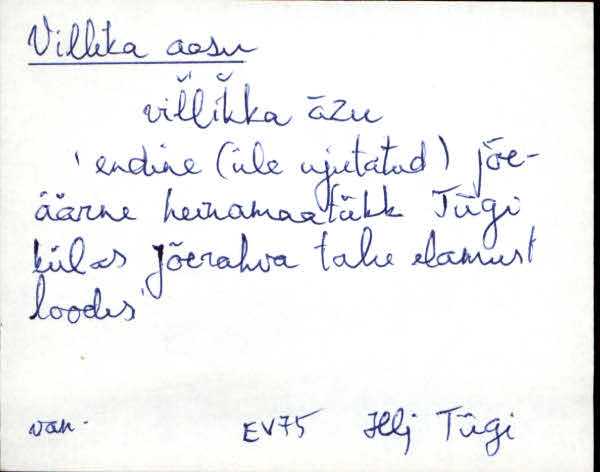 Villika aasu
vil̆lĭkka āzu
'endine (üle ujutatud) jõe-
äärne heinamaatükk Tügi
külas Jõerahva talu elamust
loodes'
van. EV75 Hlj Tügi